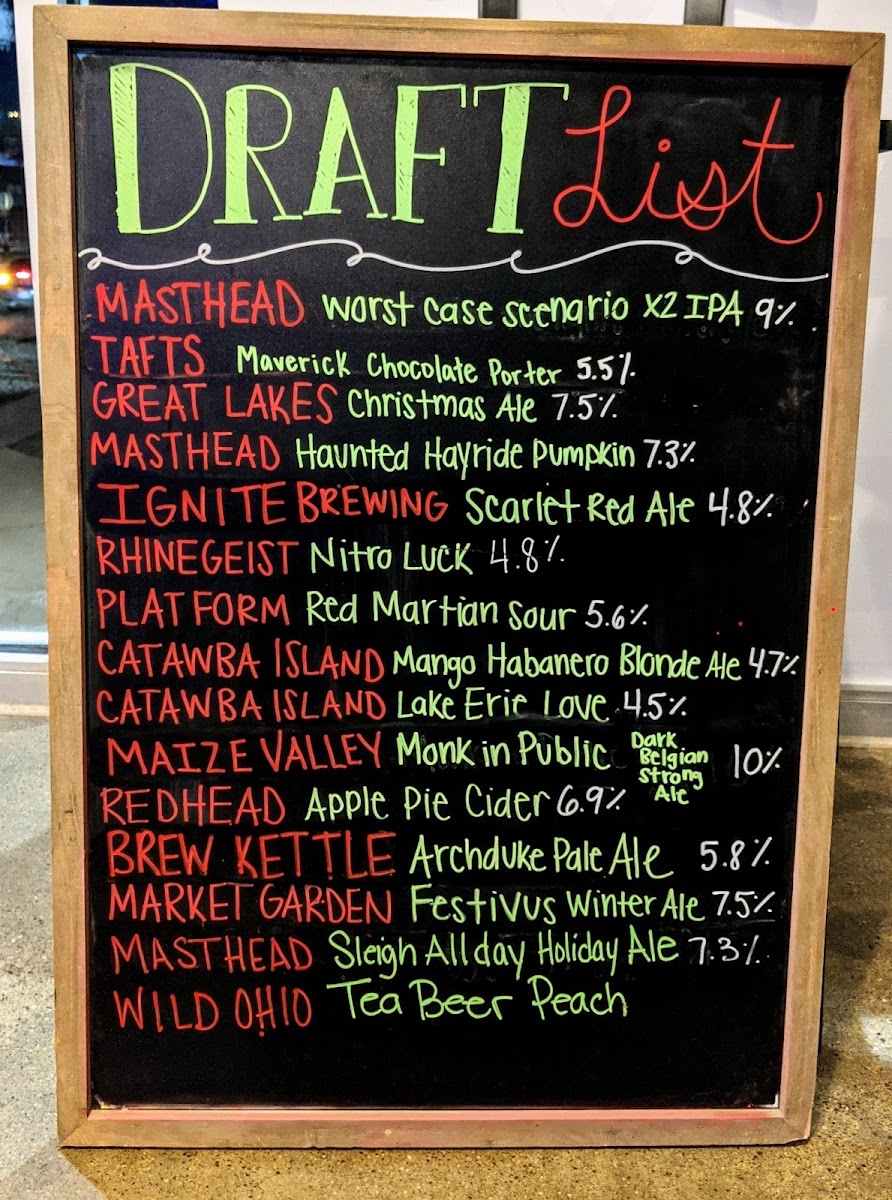 DRAFT List
MASTHEAD Worst Case Scenario X2 IPA 9%
TAFTS Maverick Chocolate Porter 5.5%
GREAT LAKES Christmas Ale 7.5%
MASTHEAD Haunted Hayride Pumpkin 7.3%
IGNITE BREWING Scarlet Red Ale 4.8%
RHINEGEIST Nitro Luck 4.8%
PLATFORM Red Martian Sour 5.6%
CATAWBA ISLAND Mango Habanero Blonde Ale 4.7%
CATAWBA ISLAND Lake Erie Love 4.5%
MAIZE VALLEY Monk in Public Dark Belgian Strong Ale 10%
REDHEAD Apple Pie Cider 6.9%
BREW KETTLE Archduke Pale Ale 5.8%
MARKET GARDEN Festivus Winter Ale 7.5%
MASTHEAD Sleigh All day Holiday Ale 7.3%
WILD OHIO Tea Beer Peach